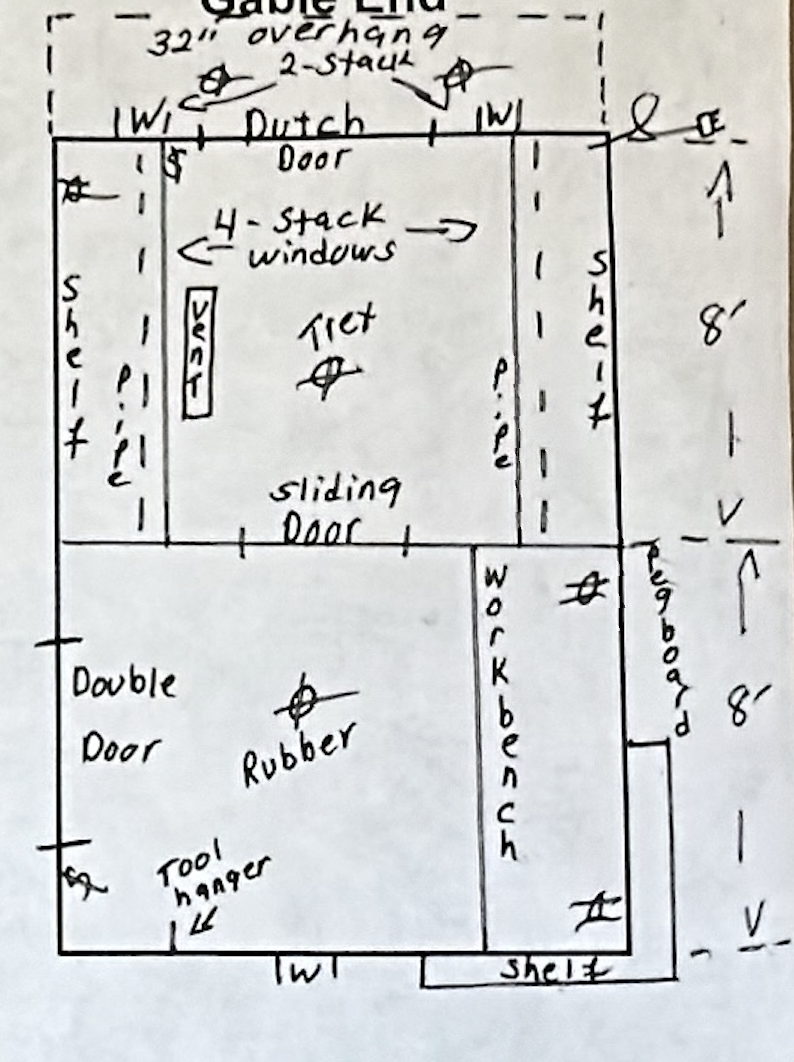 Gable End
32" overhang
2-stack
W
W
Dutch
Door
4-stack
windows
shelf
shelf
Vent
Tret
pipe
pipe
8'
sliding
Door
Pegboard
Workbench
Double
Door
Rubber
8'
Tool
hanger
W
shelf